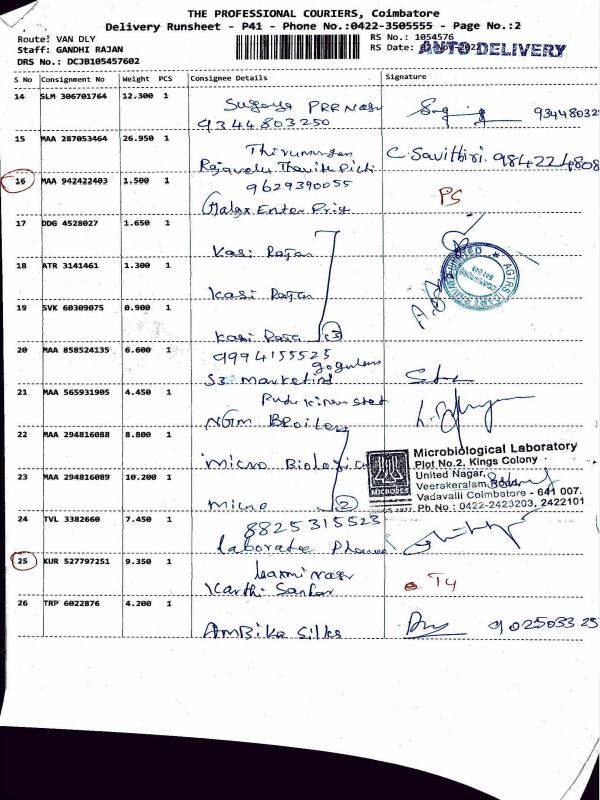 THE PROFESSIONAL COURIERS, Coimbatore
Delivery Runsheet - P41 - Phone No.:0422-3505555 - Page No.:2
Route: VAN DLY
RS No.: 1054576
Staff: GANDHI RAJAN
RS Date: AUTO DELIVERY
DRS No.: DCJB105457602
S No Consignment No Weight PCS Consignee Details Signature
14 SLM 306701764 12.300 1
9344803250 934480325
15 MAA 287053464 26.950 1
Thirumurgan
C. Savithiri. 984224808
16 MAA 942422403 1.500 1
9629390055
PS
17 DDG 4528027 1.650 1
Kasi Rajan
18 ATR 3141461 1.300 1
Kasi Rajan
19 SVK 60309075 0.900 1
Kasi Raja 3
20 MAA 858524135 6.600 1
9994155525
gogulam
S3 marketing
21 MAA 565931905 4.450 1
NGM BRoilers
22 MAA 294816088 8.800 1
micro Biological
Microbiological Laboratory
Plot No.2, Kings Colony
United Nagar,
Veerakeralam,
Vadavalli Coimbatore - 641 007.
Ph.No : 0422-2423203, 2422101
MICROBES
23 MAA 294816089 10.200 1
micro 2
24 TVL 3382660 7.450 1
8825315523
laborate Pharma
25 KUR 527797251 9.350 1
Laxmi nagar
Karthi Sankar
T4
26 TRP 6022876 4.200 1
AmBika Silks
9025033 25